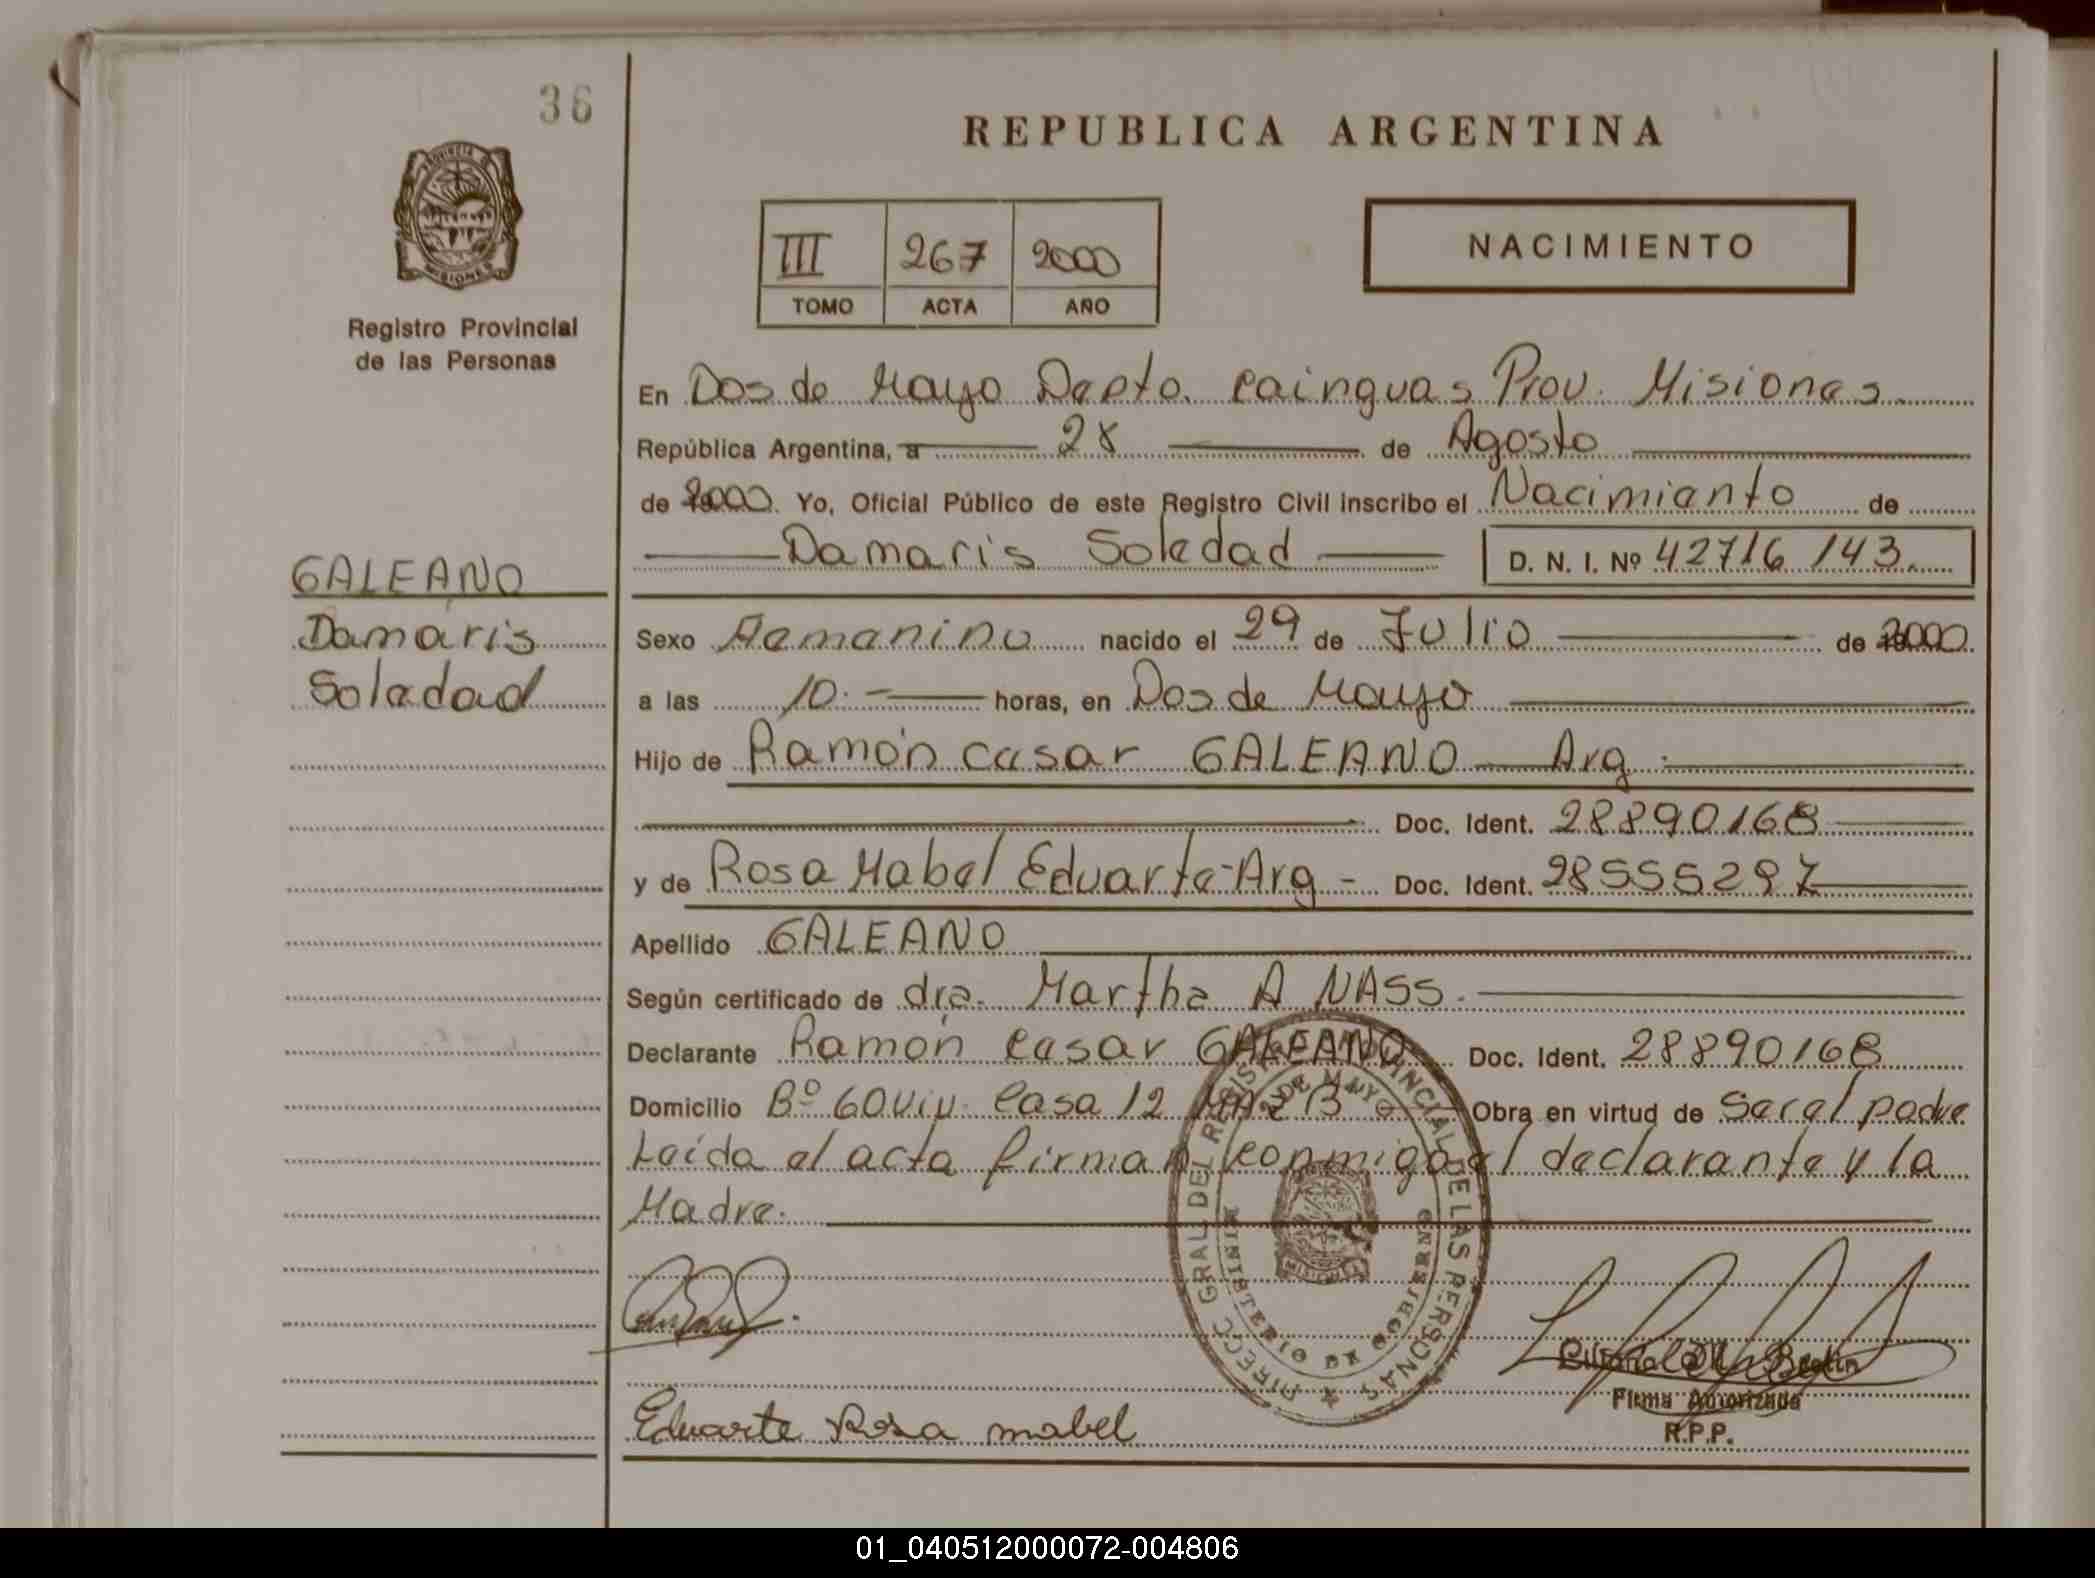 36
REPUBLICA ARGENTINA
PROVINCIA DE
MISIONES
Registro Provincial
de las Personas
III 267 2000
TOMO ACTA AÑO
NACIMIENTO
En Dos de Mayo Depto. Cainguas Prov. Misiones
República Argentina, a 28 de Agosto
de 2000 Yo, Oficial Público de este Registro Civil inscribo el Nacimiento de
Damaris Soledad D. N. I. Nº 42716143
GALEANO
Damaris
Soledad
Sexo Femenino nacido el 29 de Julio de 2000
a las 10.- horas, en Dos de Mayo
Hijo de Ramón Cesar GALEANO Arg.
Doc. Ident. 28890168
y de Rosa Mabel Eduarte-Arg - Doc. Ident. 28555297
Apellido GALEANO
Según certificado de dra. Martha A NASS.
Declarante Ramón Cesar GALEANO Doc. Ident. 28890168
Domicilio Bº 60 viv. Casa 12 Manz B Obra en virtud de Ser el padre
Leída el acta firman conmigo el declarante y la
Madre.
DIRECC. GRAL DEL REGISTRO PROVINCIAL DE LAS PERSONAS
DOS DE MAYO
MINISTERIO DE GOBIERNO
MISIONES
Eduarte Rosa mabel
Firma Autorizada
R.P.P.
01_040512000072-004806